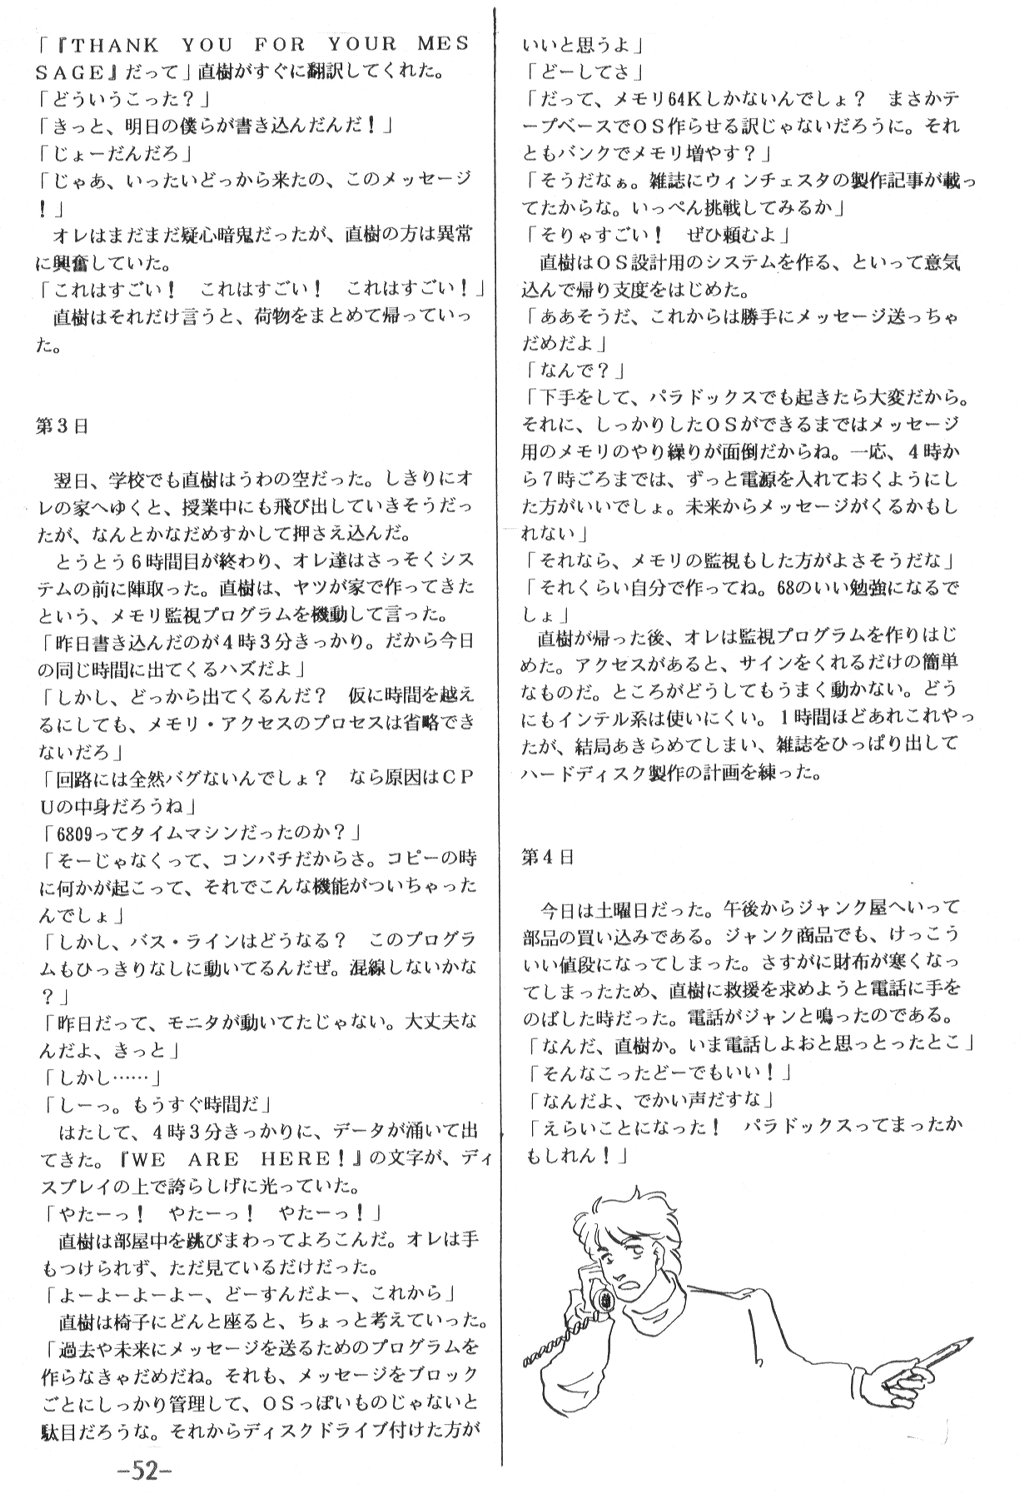 「『ＴＨＡＮＫ　ＹＯＵ　ＦＯＲ　ＹＯＵＲ　ＭＥＳ
ＳＡＧＥ』だって」直樹がすぐに翻訳してくれた。
「どういうこった？」
「きっと、明日の僕らが書き込んだんだ！」
「じょーだんだろ」
「じゃあ、いったいどっから来たの、このメッセージ
！」
　オレはまだまだ疑心暗鬼だったが、直樹の方は異常
に興奮していた。
「これはすごい！　これはすごい！　これはすごい！」
　直樹はそれだけ言うと、荷物をまとめて帰っていっ
た。
第３日
　翌日、学校でも直樹はうわの空だった。しきりにオ
レの家へゆくと、授業中にも飛び出していきそうだっ
たが、なんとかなだめすかして押さえ込んだ。
　とうとう６時間目が終わり、オレ達はさっそくシス
テムの前に陣取った。直樹は、ヤツが家で作ってきた
という、メモリ監視プログラムを機動して言った。
「昨日書き込んだのが４時３分きっかり。だから今日
の同じ時間に出てくるハズだよ」
「しかし、どっから出てくるんだ？　仮に時間を越え
るにしても、メモリ・アクセスのプロセスは省略でき
ないだろ」
「回路には全然バグないんでしょ？　なら原因はＣＰ
Ｕの中身だろうね」
「6809ってタイムマシンだったのか？」
「そーじゃなくって、コンパチだからさ。コピーの時
に何かが起こって、それでこんな機能がついちゃった
んでしょ」
「しかし、バス・ラインはどうなる？　このプログラ
ムもひっきりなしに動いてるんだぜ。混線しないかな
？」
「昨日だって、モニタが動いてたじゃない。大丈夫な
んだよ、きっと」
「しかし……」
「しーっ。もうすぐ時間だ」
　はたして、４時３分きっかりに、データが涌いて出
てきた。『ＷＥ　ＡＲＥ　ＨＥＲＥ！』の文字が、ディ
スプレイの上で誇らしげに光っていた。
「やたーっ！　やたーっ！　やたーっ！」
　直樹は部屋中を跳びまわってよろこんだ。オレは手
もつけられず、ただ見ているだけだった。
「よーよーよーよー、どーすんだよー、これから」
　直樹は椅子にどんと座ると、ちょっと考えていった。
「過去や未来にメッセージを送るためのプログラムを
作らなきゃだめだね。それも、メッセージをブロック
ごとにしっかり管理して、ＯＳっぽいものじゃないと
駄目だろうな。それからディスクドライブ付けた方が
いいと思うよ」
「どーしてさ」
「だって、メモリ64Ｋしかないんでしょ？　まさかテ
ープベースでＯＳ作らせる訳じゃないだろうに。それ
ともバンクでメモリ増やす？」
「そうだなぁ。雑誌にウィンチェスタの製作記事が載っ
てたからな。いっぺん挑戦してみるか」
「そりゃすごい！　ぜひ頼むよ」
　直樹はＯＳ設計用のシステムを作る、といって意気
込んで帰り支度をはじめた。
「ああそうだ、これからは勝手にメッセージ送っちゃ
だめだよ」
「なんで？」
「下手をして、パラドックスでも起きたら大変だから。
それに、しっかりしたＯＳができるまではメッセージ
用のメモリのやり繰りが面倒だからね。一応、４時か
ら７時ごろまでは、ずっと電源を入れておくようにし
た方がいいでしょ。未来からメッセージがくるかもし
れない」
「それなら、メモリの監視もした方がよさそうだな」
「それくらい自分で作ってね。68のいい勉強になるで
しょ」
　直樹が帰った後、オレは監視プログラムを作りはじ
めた。アクセスがあると、サインをくれるだけの簡単
なものだ。ところがどうしてもうまく動かない。どう
にもインテル系は使いにくい。１時間ほどあれこれやっ
たが、結局あきらめてしまい、雑誌をひっぱり出して
ハードディスク製作の計画を練った。
第４日
　今日は土曜日だった。午後からジャンク屋へいって
部品の買い込みである。ジャンク商品でも、けっこう
いい値段になってしまった。さすがに財布が寒くなっ
てしまったため、直樹に救援を求めようと電話に手を
のばした時だった。電話がジャンと鳴ったのである。
「なんだ、直樹か。いま電話しよおと思っとったとこ」
「そんなこったどーでもいい！」
「なんだよ、でかい声だすな」
「えらいことになった！　パラドックスってまったか
もしれん！」
-52-